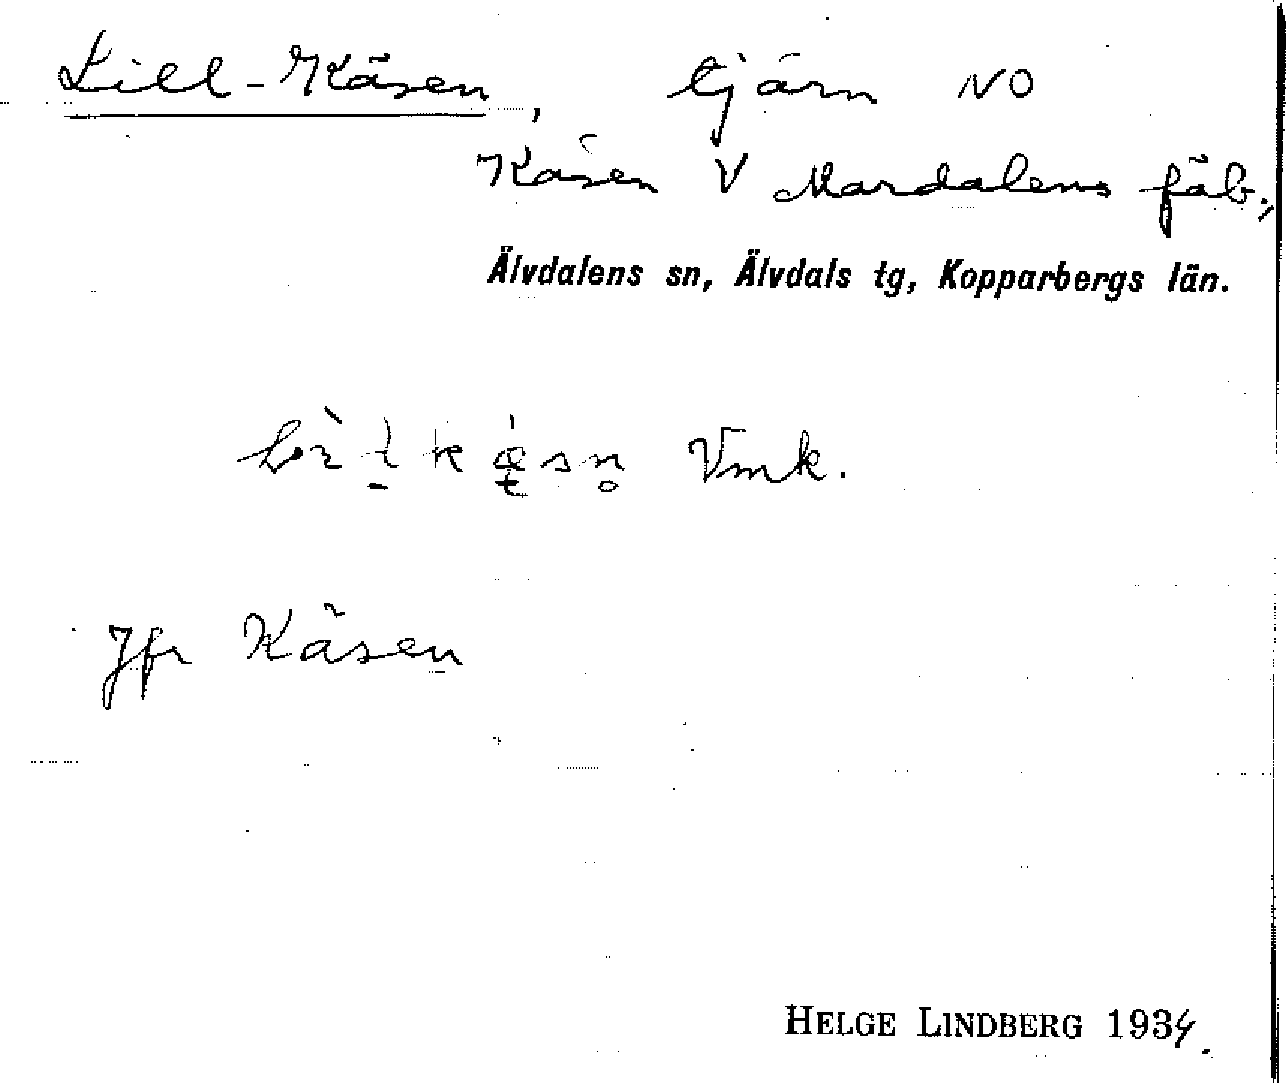 Lill-Käsen, tjärn NO
Käsen V Mardalens fäb.,
Älvdalens sn, Älvdals tg, Kopparbergs län.
Vmk.
Jfr Käsen
HELGE LINDBERG 1934.